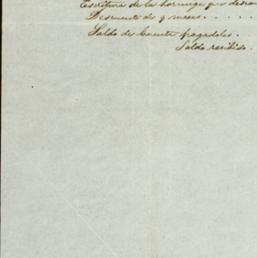 Escritura de la hormiga que
Descuento de 9 meses . . . . .
Saldo de cuenta pagadoles.
Saldo recibido.